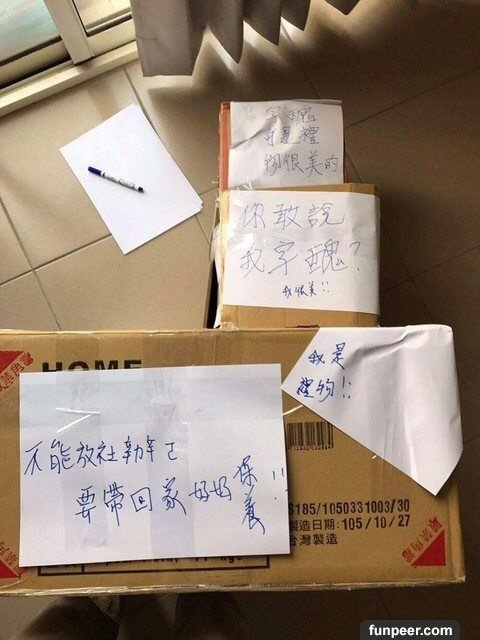 字醜
可是禮
物很美的
你敢說
我字醜?
我很美!!
我是
禮物!!
HOME
不能放社辦ㄛ
要帶回家好好保養!!
S185/1050331003/30
製造日期:105/10/27
台灣製造
funpeer.com